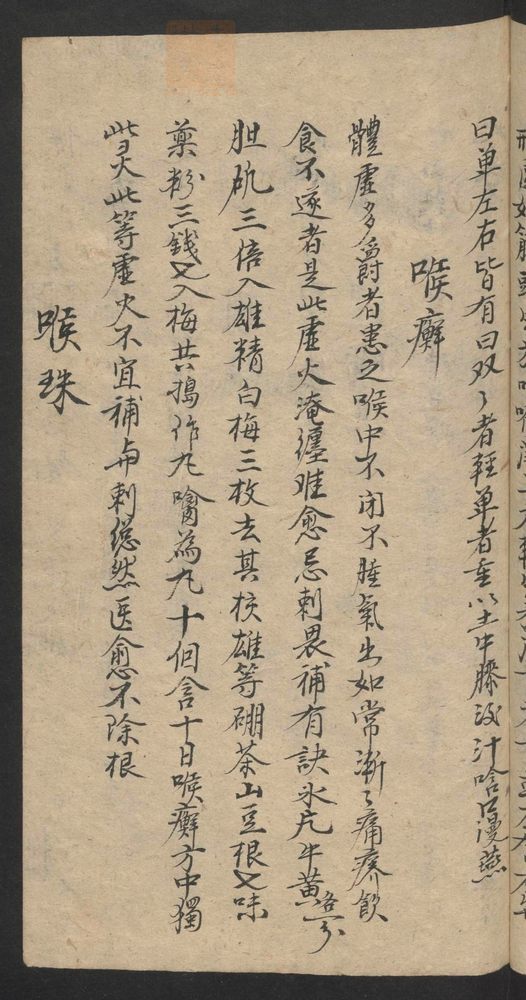 曰单左右皆有曰双々者輕单者重以土牛膝汁啥口漫燕
喉癬
體虛多欝者患之喉中不闭不腫氣出如常漸々痛痒飲
食不遂者是此虛火淹纏难愈忌刺畏補有訣氷片牛黄各一分
胆矾三倍入雄精白梅三枚去其核雄等硼茶山豆根又味
藥粉三錢又入梅共搗作丸噙為丸十個含十日喉癬方中獨
此灵此等虛火不宜補与刺縂然医愈不除根
喉珠